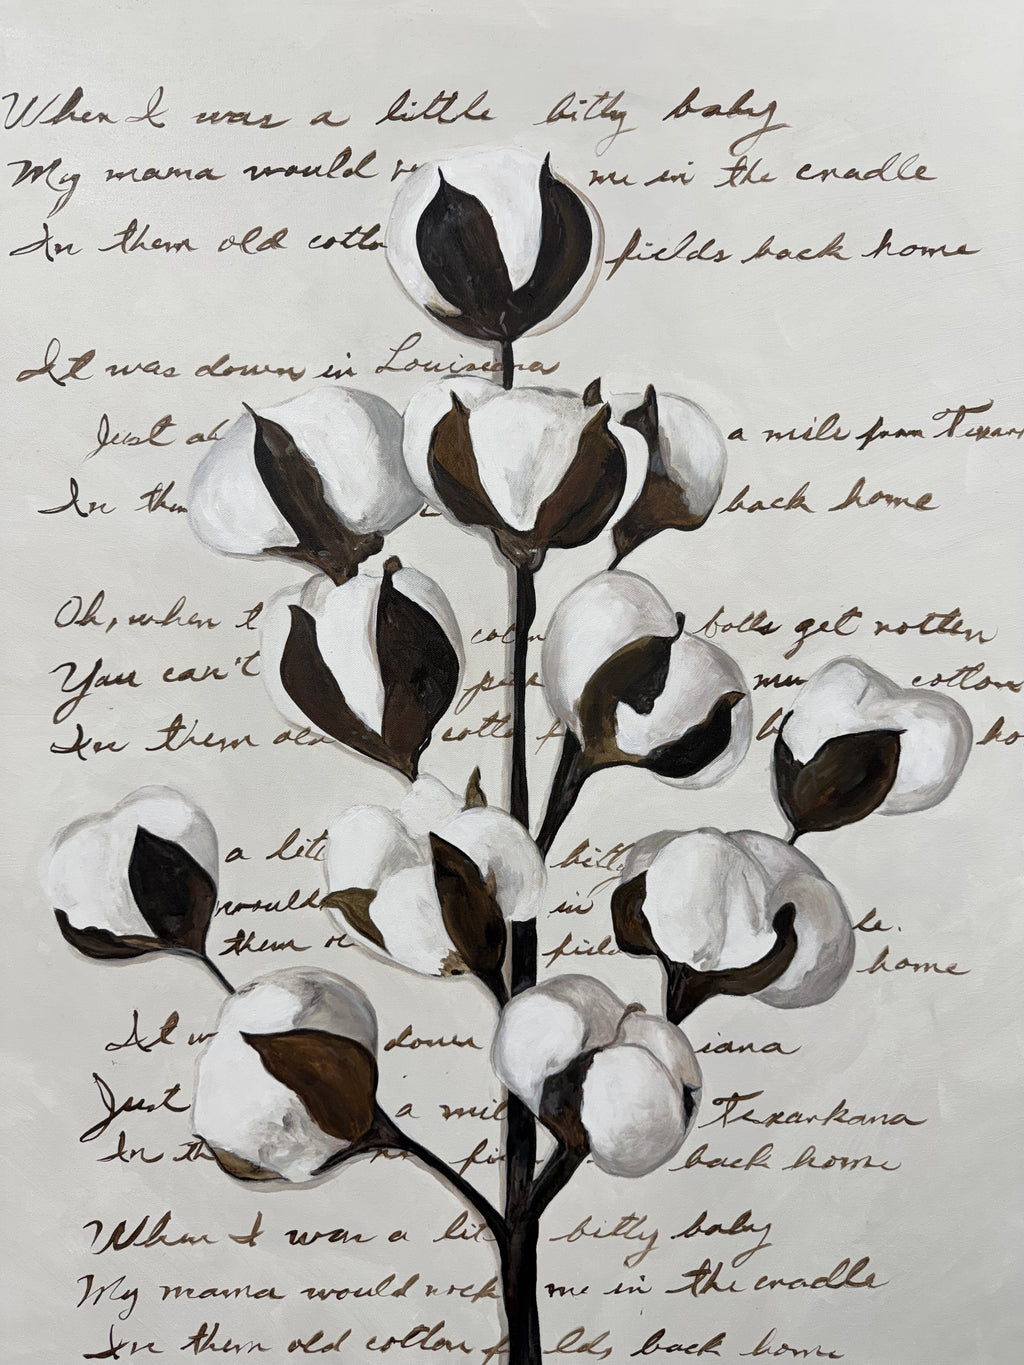 When I was a little bitty baby
My mama would me in the cradle
In them old cotto fields back home
It was down in Louisiana
Just ab a mile from Texark
In them back home
Oh, when t cotto bolls get rotten
You can't pick cotton
In them old cotto f b ho
a litt bitty
would in le.
them o field home
It w down iana
Just a mil Texarkana
In th fi back home
When I was a lit bitty baby
My mama would rock me in the cradle
In them old cotton f lds back home